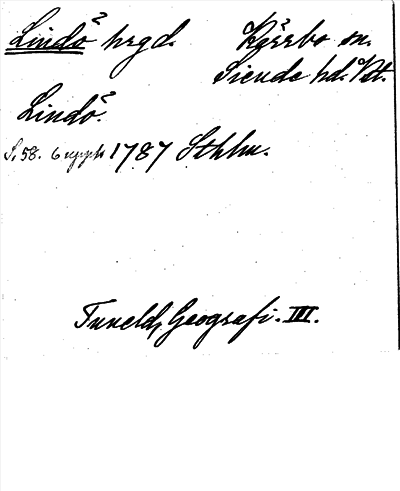 Lindö hrgd. Kärrbo sn.
Siende hd. Vst.
Lindö.
S. 58. 6 uppl. 1787 Sthlm.
Tuneld, Geografi. III.